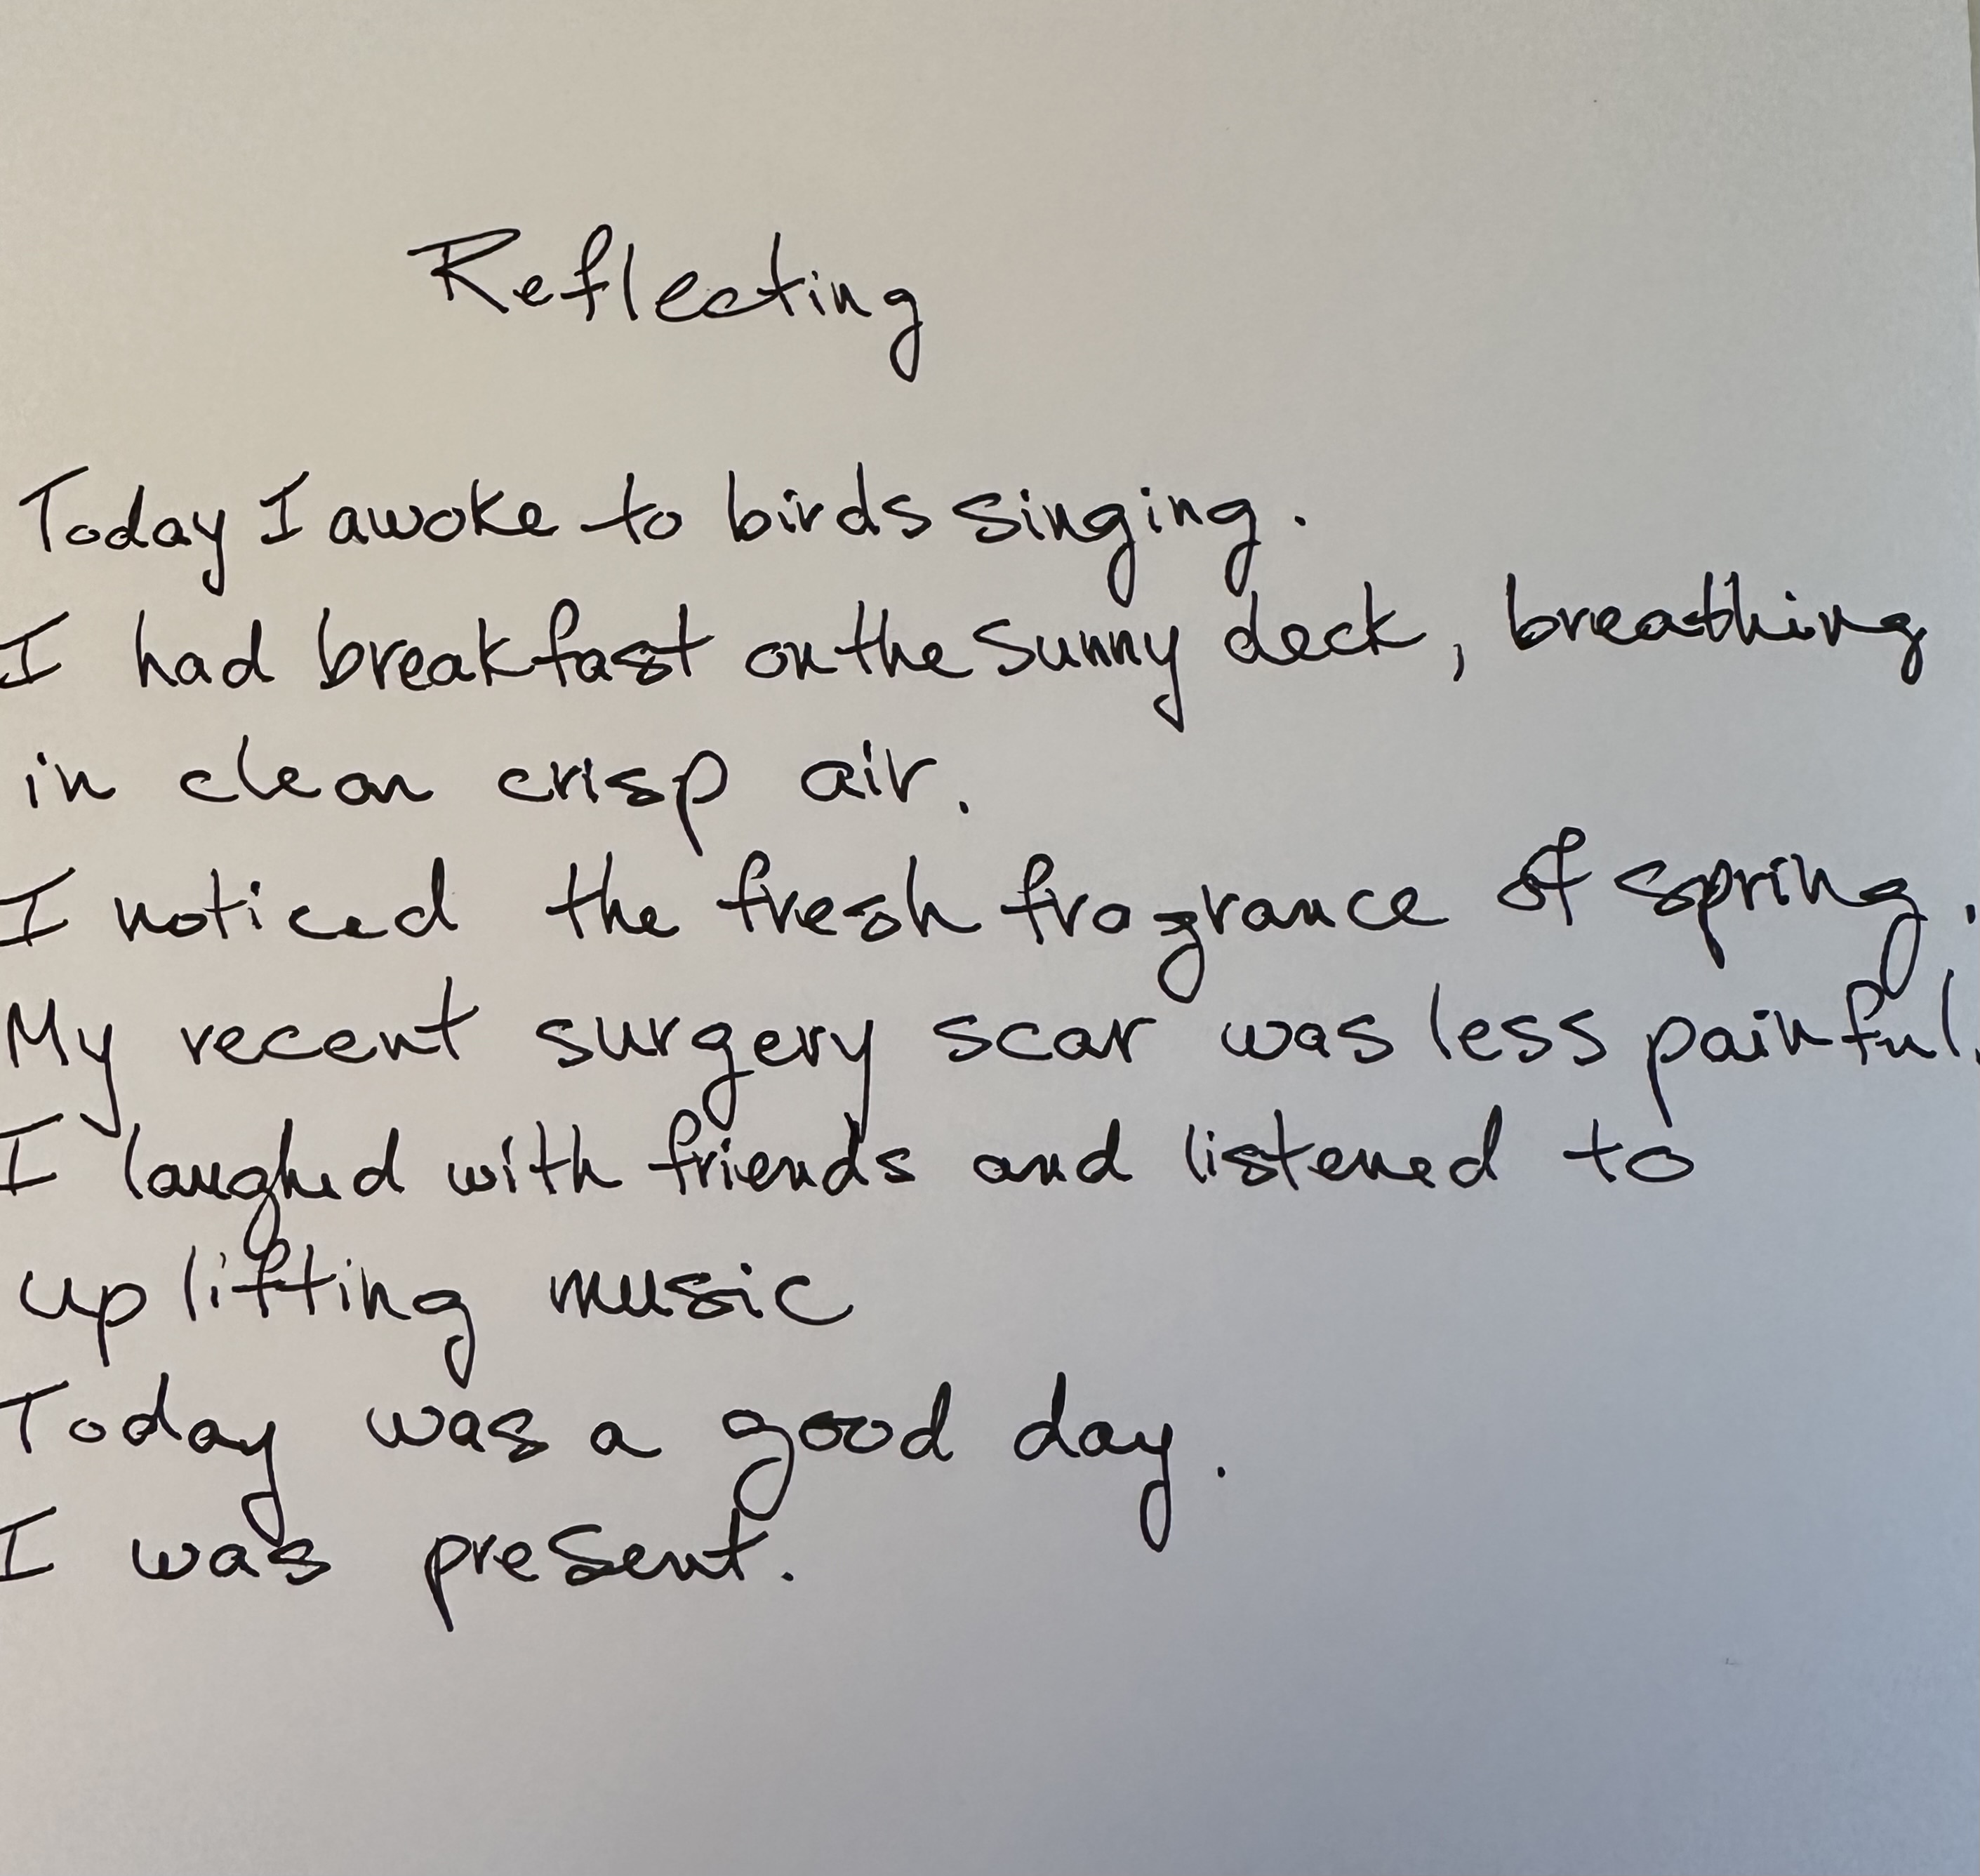 Reflecting
Today I awoke to birds singing.
I had breakfast on the sunny deck, breathing
in clean crisp air.
I noticed the fresh fragrance of spring.
My recent surgery scar was less painful.
I laughed with friends and listened to
uplifting music
Today was a good day.
I was present.